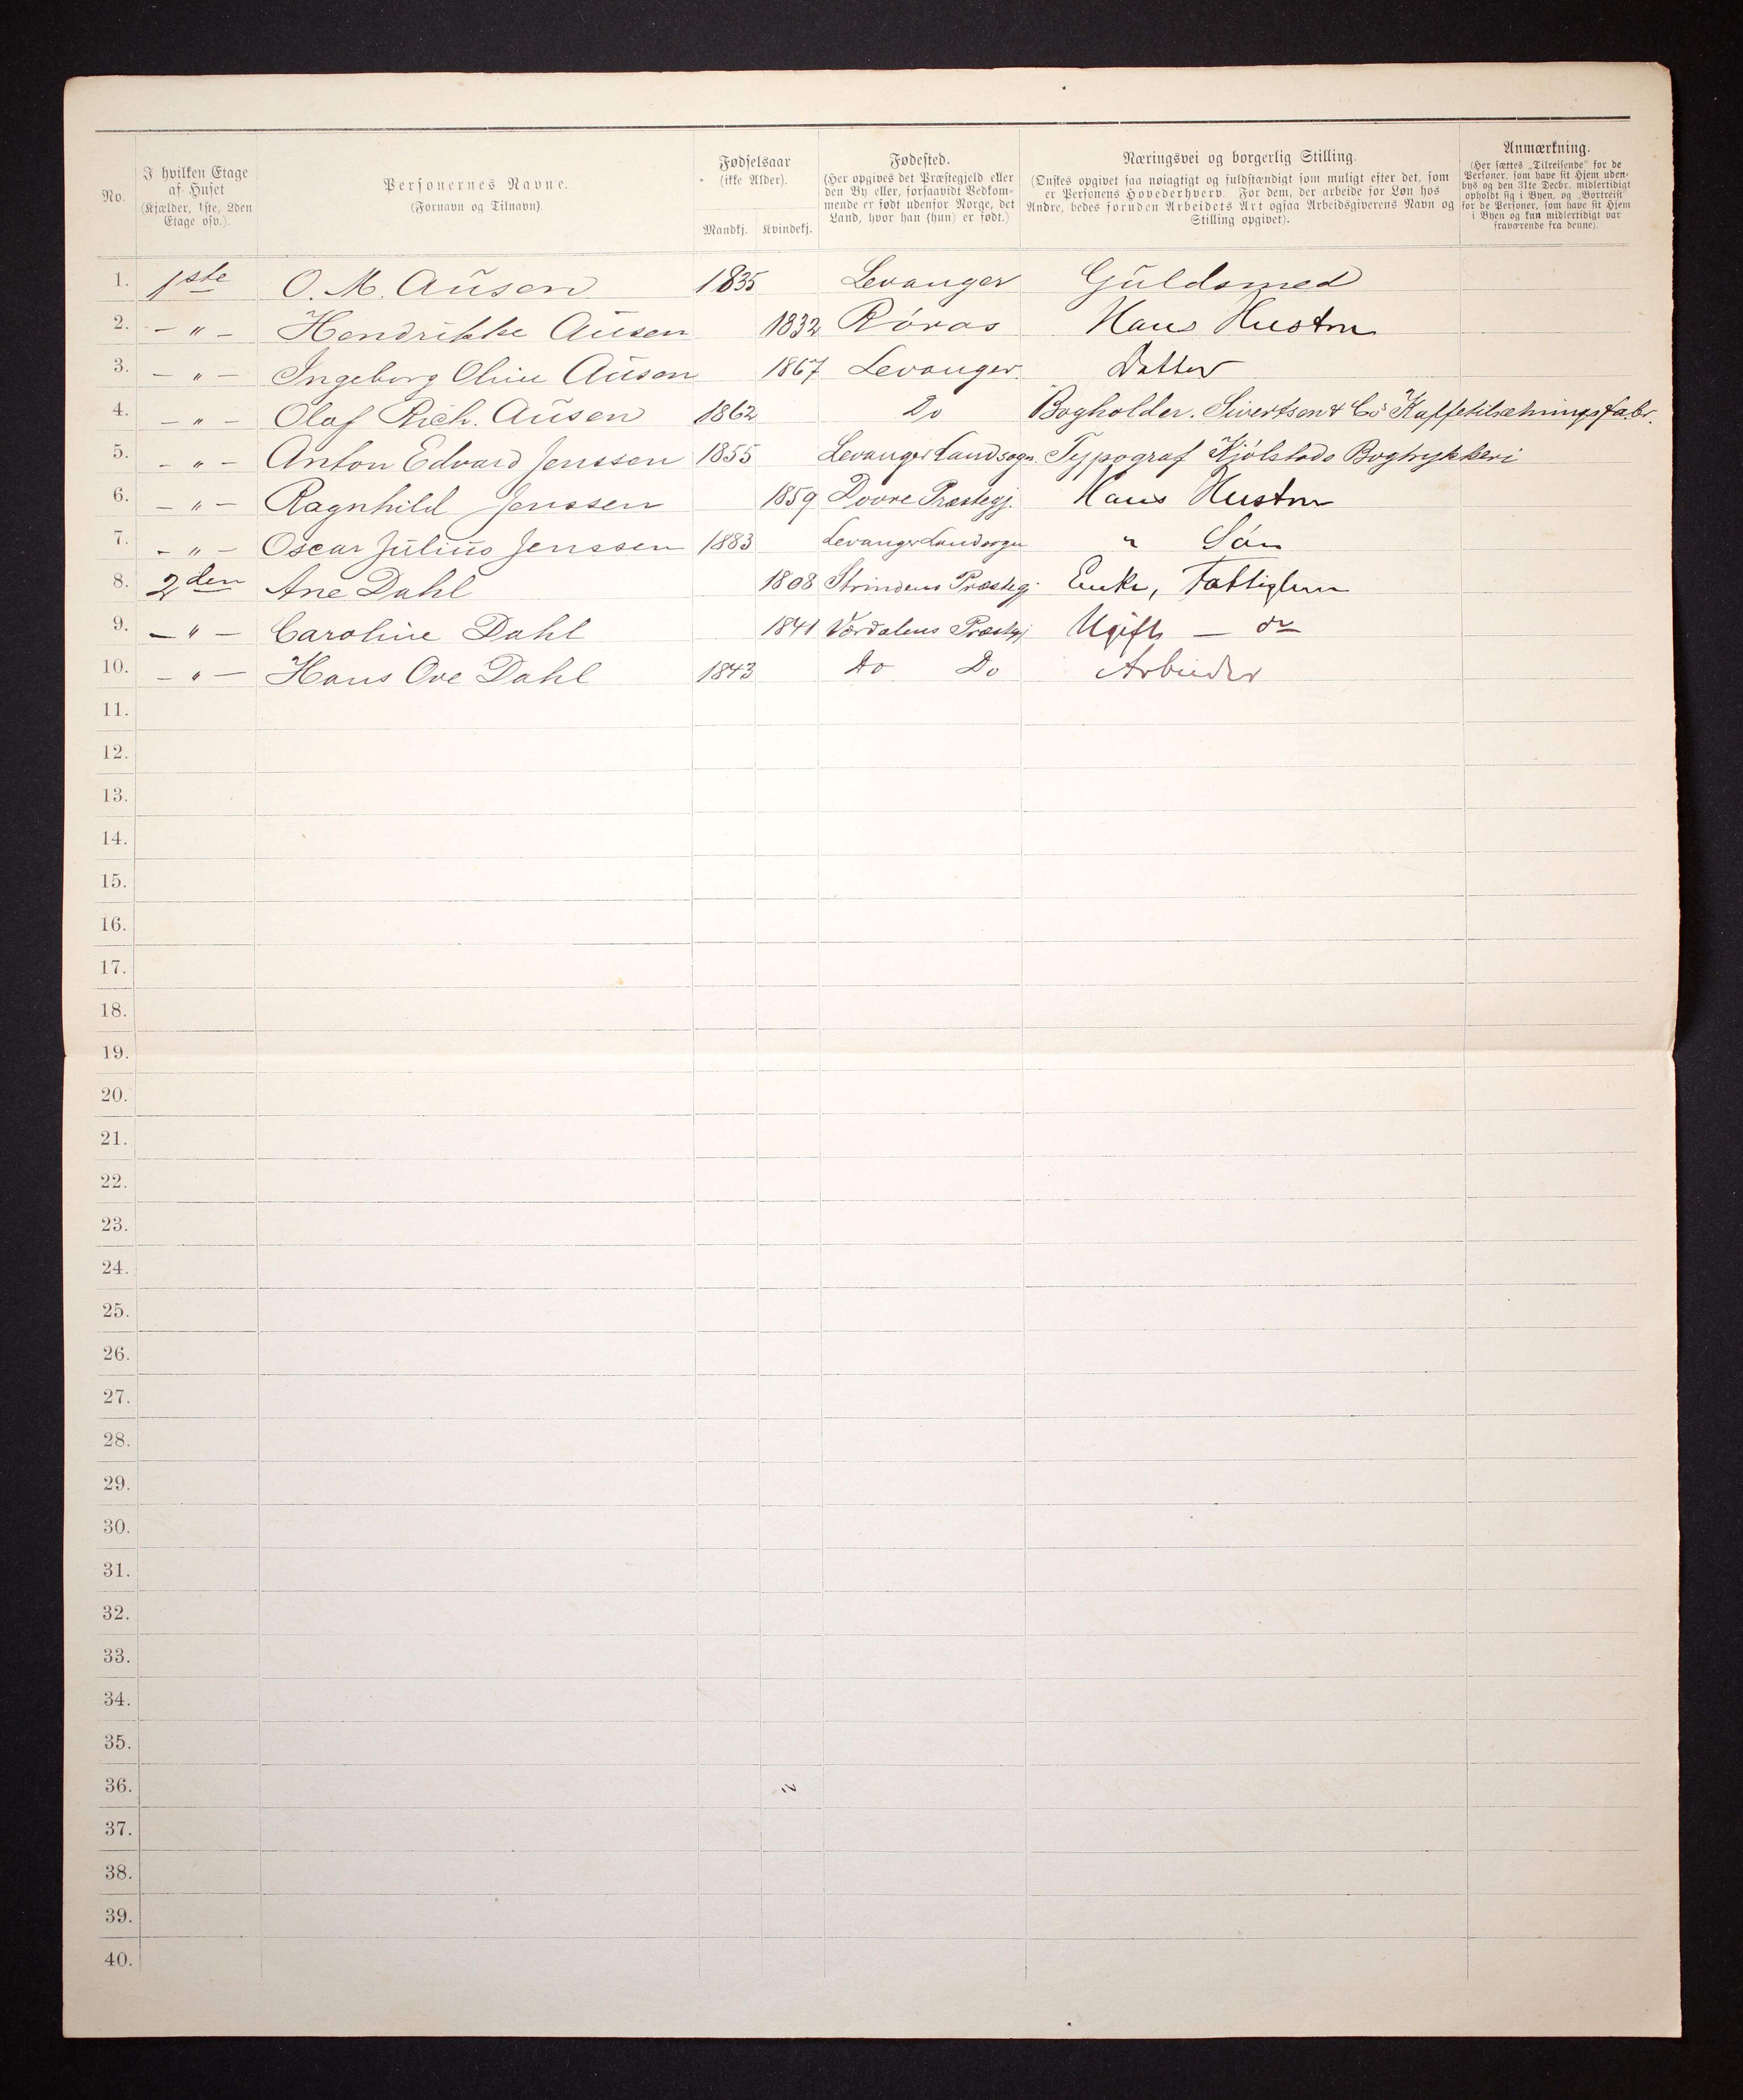 No. I hvilken Etage af Huset (Kjælder, 1ste, 2den Etage osv.). Personernes Navne. (Fornavn og Tilnavn). Fødselsaar (ikke Alder). Mandkj. Kvindekj. Fødested. (Her opgives det Præstegjeld eller den By eller, forsaavidt Vedkommende er født udenfor Norge, det Land, hvor han (hun) er født.) Næringsvei og borgerlig Stilling. (Ønskes opgivet saa nøiagtigt og fuldstændigt som muligt efter det, som er Personens Hovederhverv. For dem, der arbeide for Løn hos Andre, bedes foruden Arbeidets Art ogsaa Arbeidsgiverens Navn og Stilling opgivet). Anmærkning. (Her sættes „Tilreisende" for de Personer, som have sit Hjem udenbys og den 31te Decbr. midlertidigt opholdt sig i Byen, og „Bortreist" for de Personer, som have sit Hjem i Byen og kun midlertidigt var fraværende fra denne).
1. 1ste O. M. Ausen 1835 Levanger Guldsmed
2. – " – Hendrikke Ausen 1832 Røros Hans Hustru
3. – " – Ingeborg Oline Ausen 1867 Levanger Datter
4. – " – Olaf Rich. Ausen 1862 Do Bogholder. Sivertsen & Co Kaffetilsætningsfabr.
5. – " – Anton Edvard Jenssen 1855 Levanger Landsogn Typograf Kjølstads Bogtrykkeri
6. – " – Ragnhild Jenssen 1859 Dovre Præstegj. Hans Hustru
7. – " – Oscar Julius Jenssen 1883 Levanger Landsogn " Søn
8. 2den Ane Dahl 1808 Strindens Præstegj. Enke, Fattiglem
9. – " – Caroline Dahl 1841 Værdalens Præstegj Ugift – do
10. – " – Hans Ove Dahl 1843 Do Do Arbeider
11.
12.
13.
14.
15.
16.
17.
18.
19.
20.
21.
22.
23.
24.
25.
26.
27.
28.
29.
30.
31.
32.
33.
34.
35.
36.
37.
38.
39.
40.